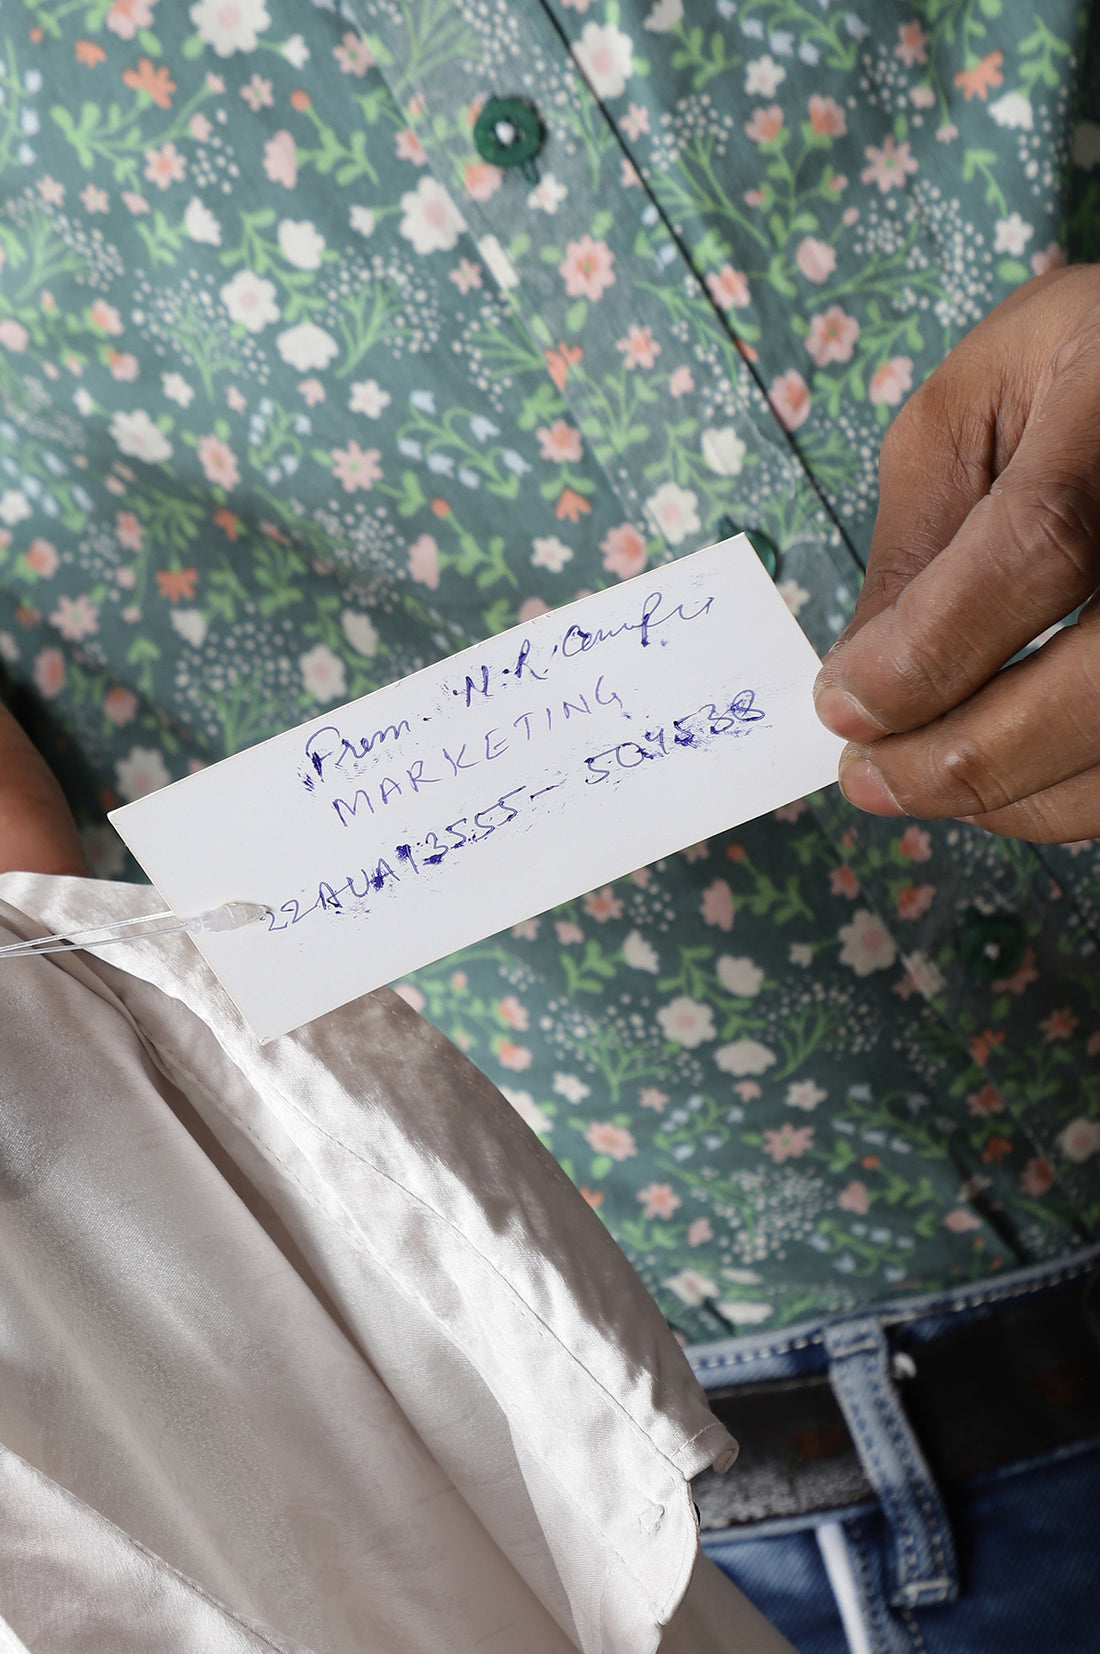 From. N.R.
MARKETING
22AUA13555-504538